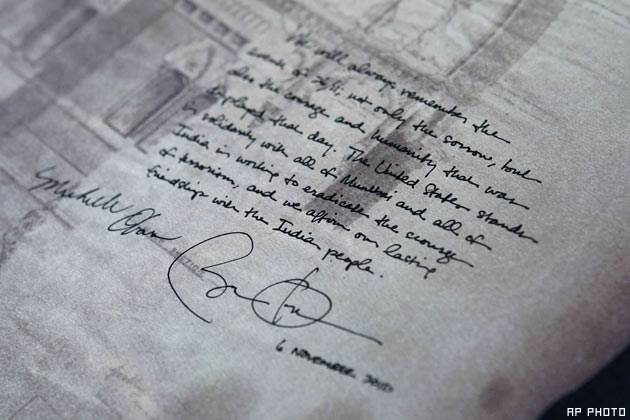 We will always remember the
events of 26/11, not only the sorrow, but
also the courage and humanity that was
displayed that day. The United States stands
in solidarity with all of Mumbai and all of
India in working to eradicate the scourge
of terrorism, and we affirm our lasting
friendship with the Indian people.
Michelle Obama
6 NOVEMBER 2010
AP PHOTO